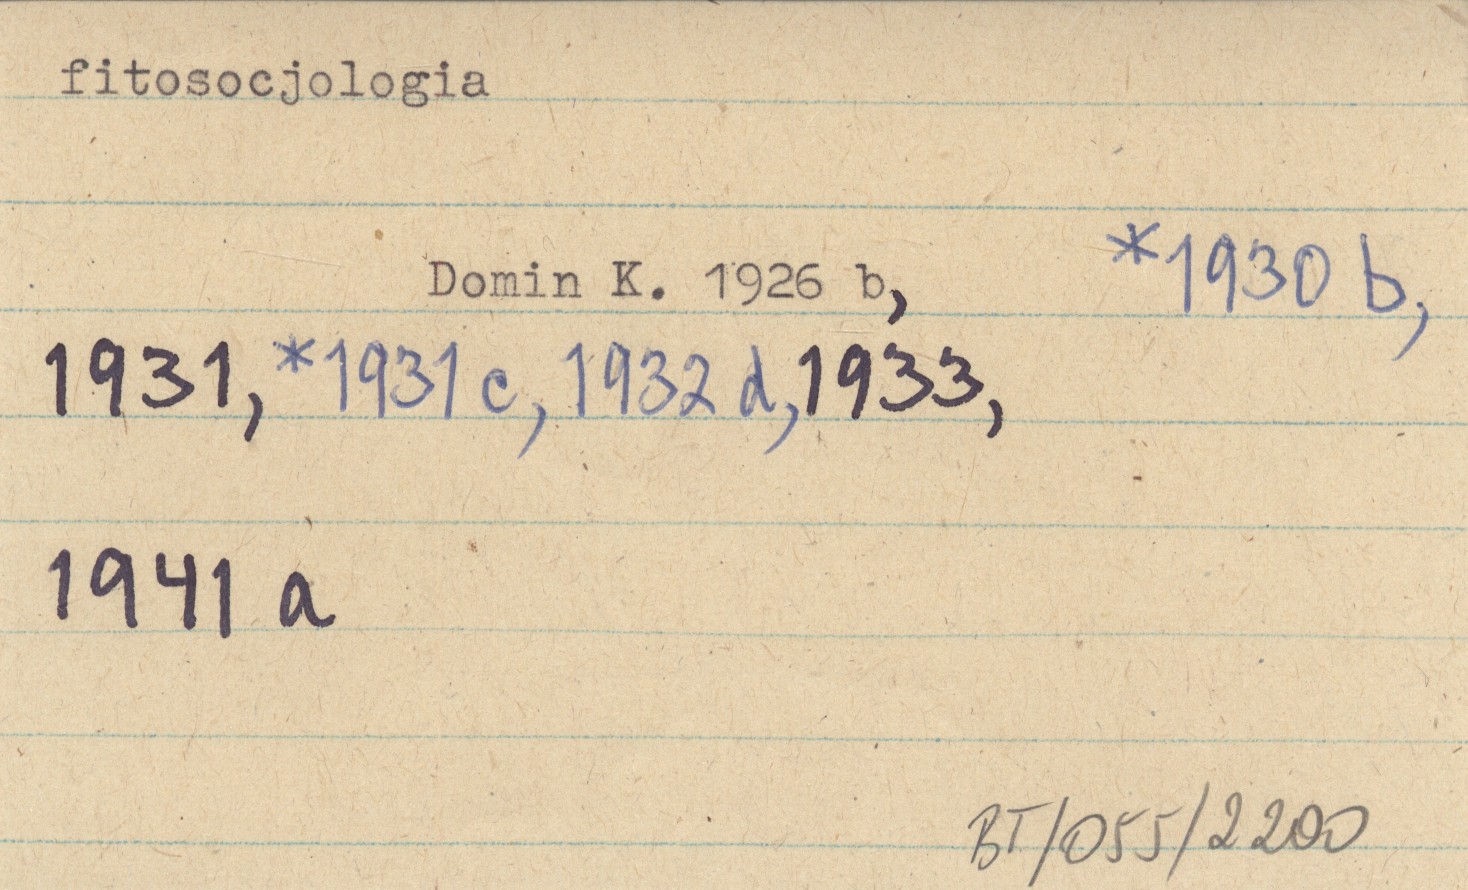 fitosocjologia
Domin K. 1926 b, *1930 b,
1931, *1931 c, 1932 d, 1933,
1941 a
BT/055/2200